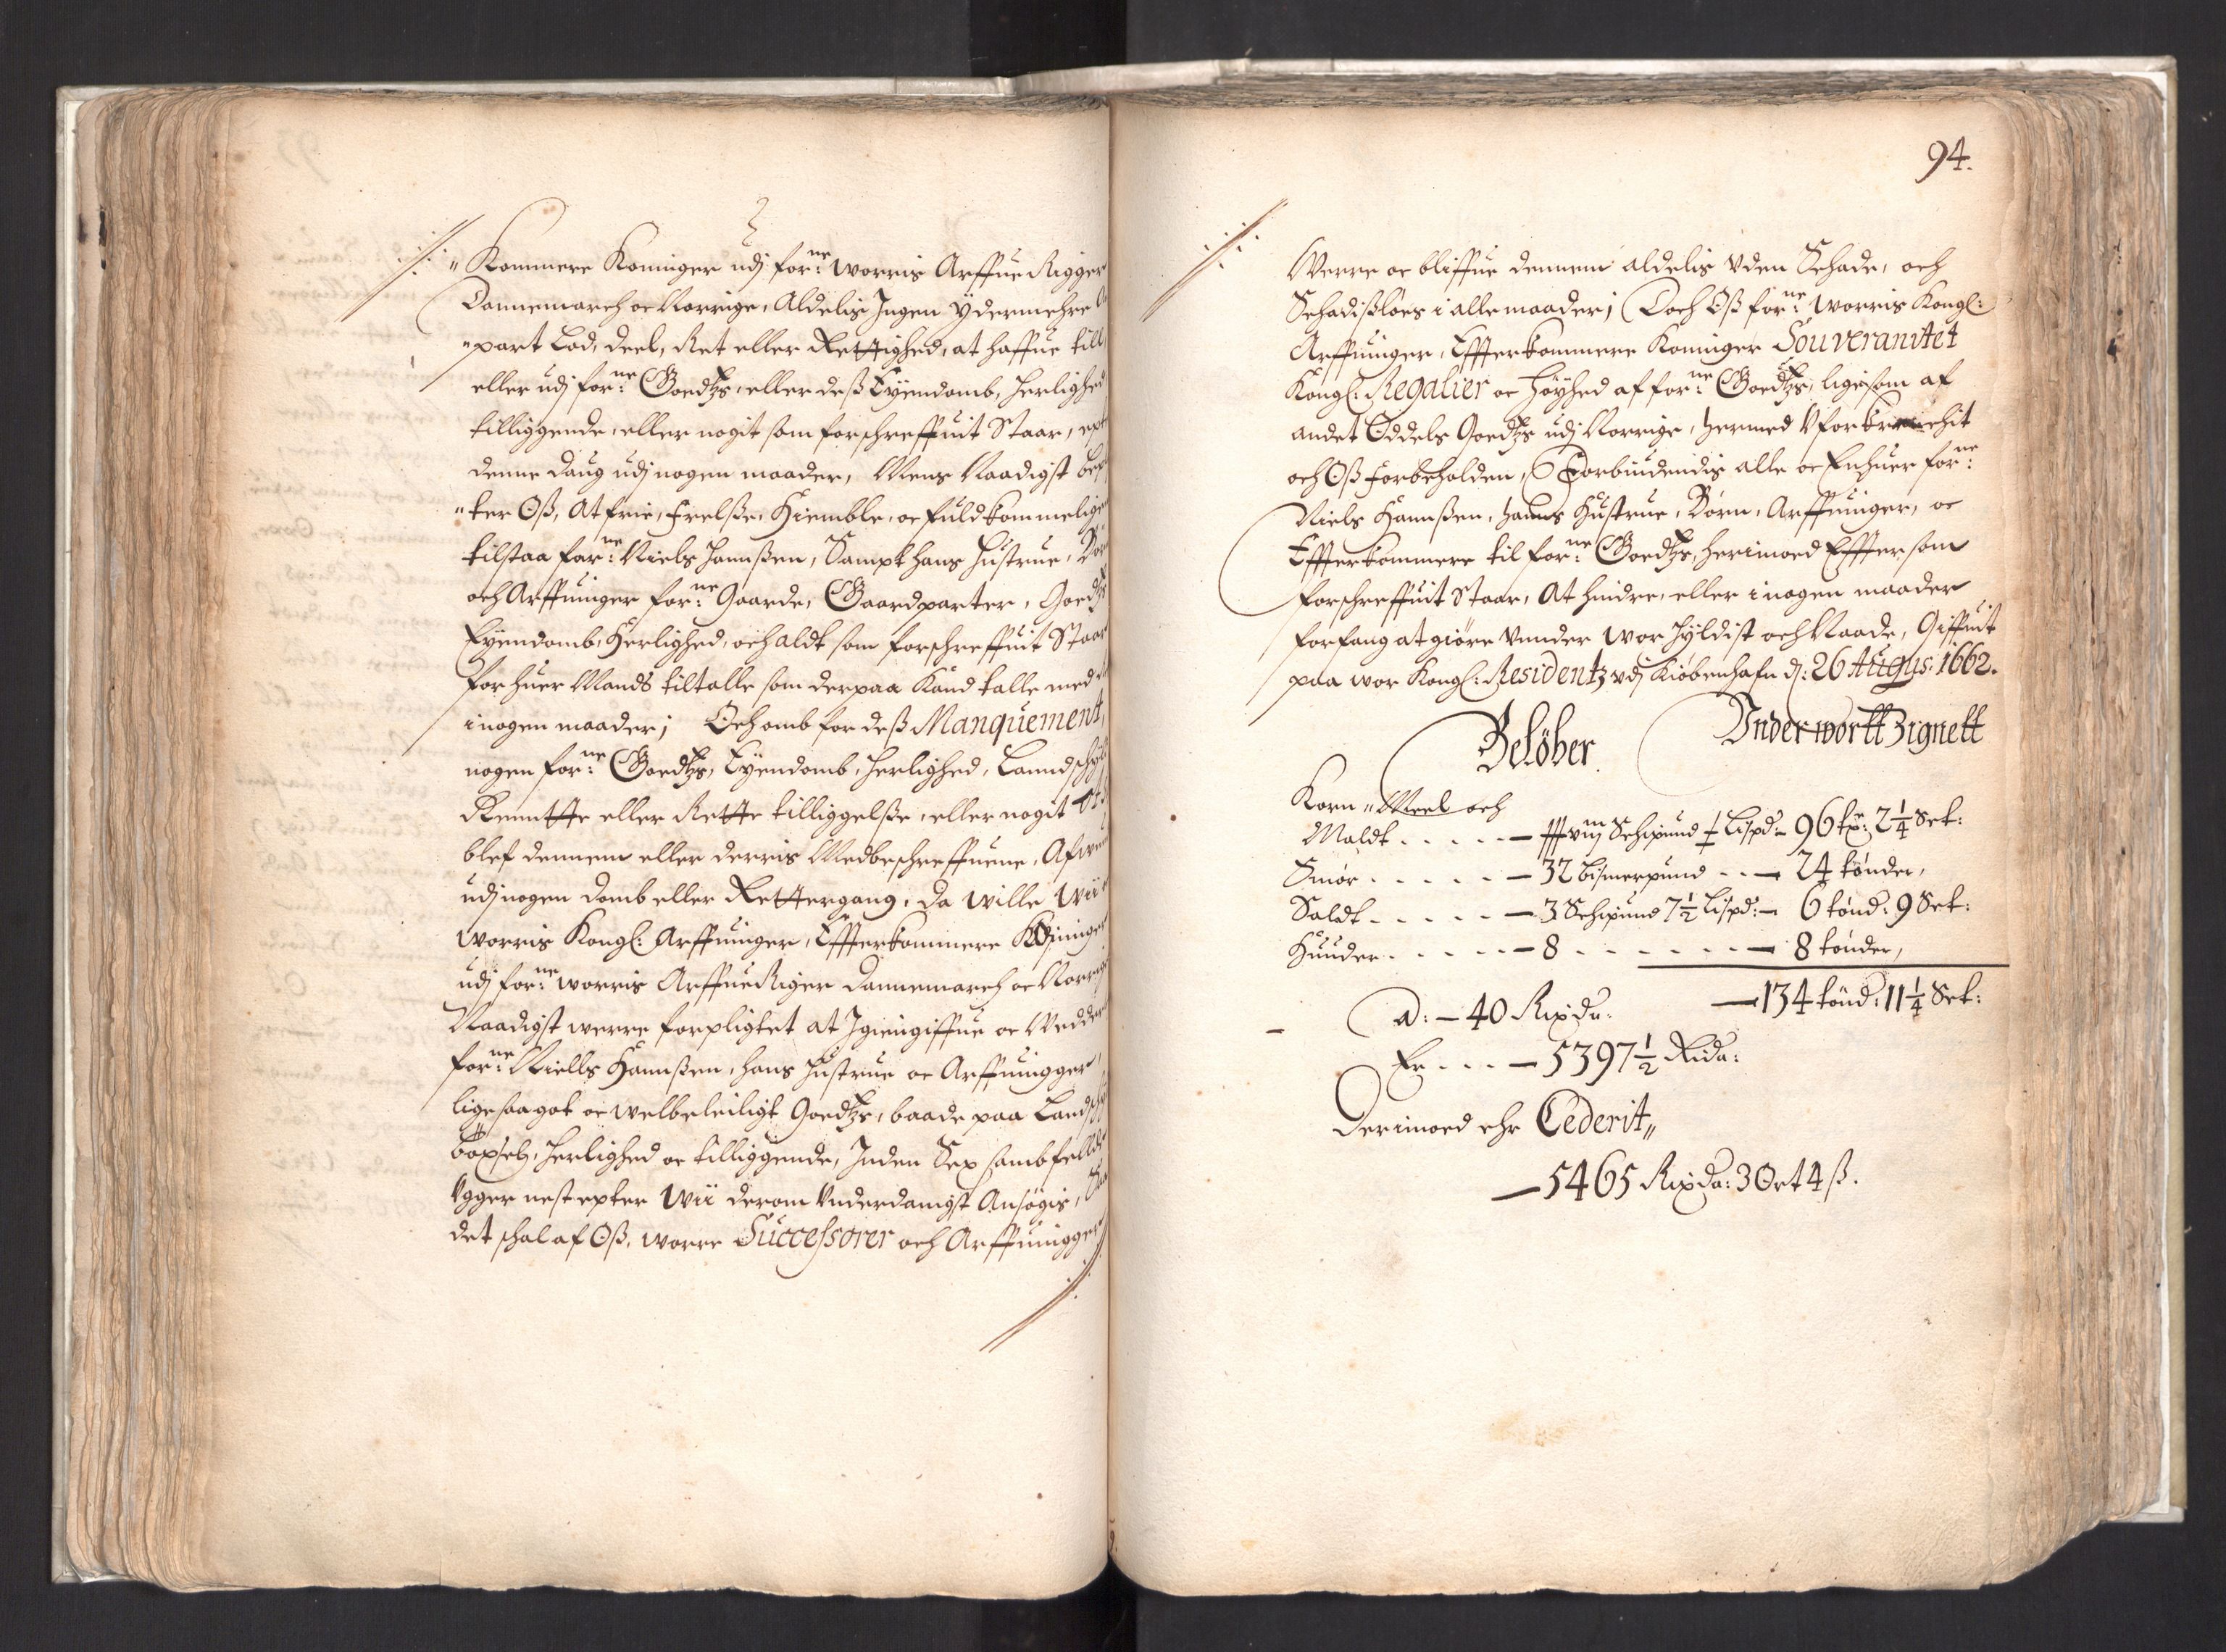 "Kommere Koninger udj for:ne worris Arffue Rigger
Dannemarch oc Norrige, Aldelis Ingen ydermehre
"part Lod, deel, Ret eller Rettighed, at haffue till
eller udj for:ne Goedtzs, eller deß Eyendomb, Herlighed
tilliggende, eller nogit som forschreffuit Staar, epter
denne daug udj nogen maader, Mens Naadigst
"ter Oß, At frie, Frelße, Hiemble, oc fuldkommeligen
tilstaa for:ne Niels Hannßen, Sampt hans Hustrue, Børn
och Arffuinger for:ne Gaarde, Gaardparter, Goedtzs
Eyendomb, Herlighed, och aldt som forschreffuit Staar
for huer Mands tiltalle som derpaa Kand talle med
i nogen maader; Och omb for deß Manquement,
nogen for:ne Goedtzs, Eyendomb, Herlighed, Lanndschyld
Renntte eller Rette tilliggelße, eller nogit
blef dennem eller derris Medbeschreffuene, Afwunden
udj nogen domb eller Rettergang, da wille Wii
worris Kongl: Arffuinger, Effterkommere Koninger
udj for:ne worris Arffue Riger Dannemarch oc Norrige
Naadigst werre forpligtet at Igiengiffue oc Wedder
for:ne Niells Hannßen, hans Hustrue oc Arffuingger
lige saa got oc welbeleiligt Goedtzs, baade paa Landschyld
böxsel, Herlighed oc tilliggende, Inden Sex sambfelldt
Vgger nest epter Wii derom Vnderdanigst Ansøgis,
det schal af Oß, worre Successorer och Arffuingger
94.
Werre oc bliffue dennem aldelis uden Schade, och
Schadisløes i alle maader; Doch Oß for:ne worris Kongl:
Arffuinger, Effterkommere Koninger Souveranitet
Kongl: Regalier oc Høyhed af for:ne Goedtzs, lige som af
andet Oddels Goedtzs udj Norrige, hermed Vforkrenchit
och Oß Forbeholden, Forbiudendis alle oc Enhuer for:ne
Niels Hannßen, hanns Hustrue, Børn, Arffuinger, oc
Effterkommere til for:ne Goedtzs, herimoed Effter som
forschreffuit Staar, At hindre, eller i nogen maader
forfang at giøre Vnnder Wor Hyldist och Naade, Giffuit
paa wor Kongl: Residentz udj Kiøbenhafn d: 26 Augus: 1662.
Beløber Vnder wortt Zignett
Korn "Meel och
Maldt . . . . . — Schipund Lispd — 96 2 1/4 Set:
Smør . . . . . — 32 bismerpund . . — 24 tønder,
Saldt . . . . . — 3 Schipund 7 1/2 Lispd: — 6 tønd: 9 Set:
Huuder . . . . . — 8 . . . . . . — 8 tønder,
— 134 tønd: 11 1/4 Set:
a: — 40 Rixdr:
Er . . . — 5397 1/2 Rida:
Derimoed ehr Cederit"
— 5465 Rixda: 3 Ort 4 ß.